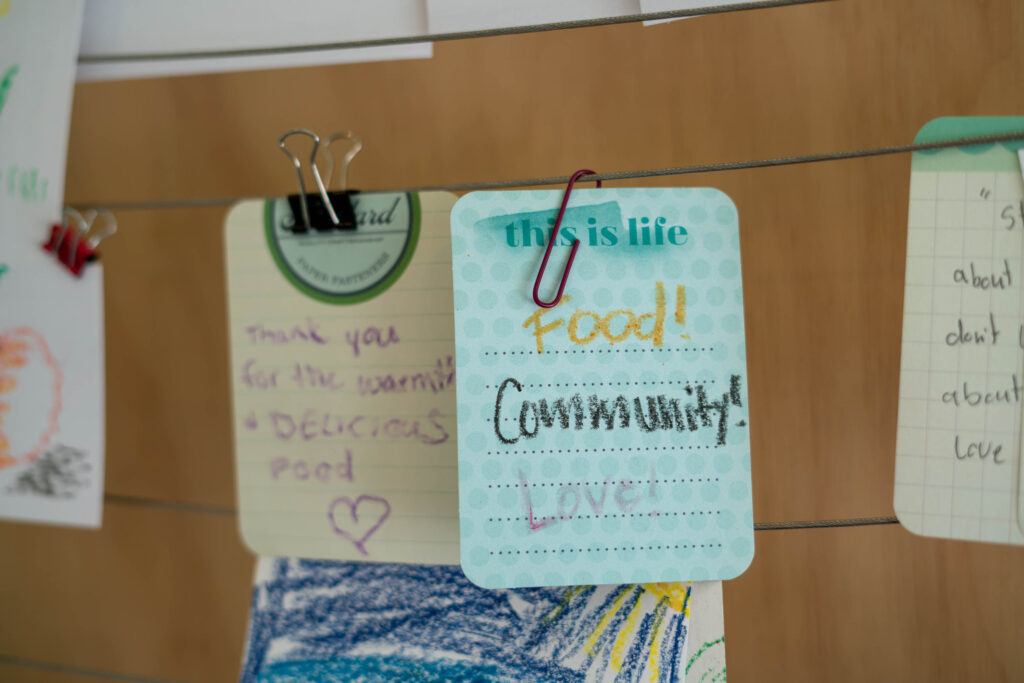 PAPER FASTENERS
Thank you
for the warmth
+ DELICIOUS
Food
this is life
Food!
Community!
Love!
about
don't
about
love